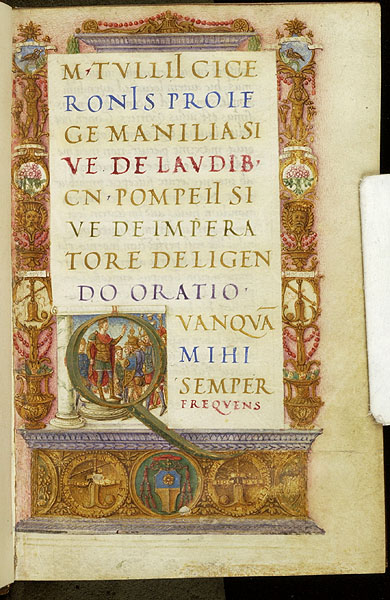 M·TVLLII CICE
RONIS PRO LE
GE MANILIA SI
VE· DE LAVDIB·
CN· POMPEII SI
VE DE IMPERA
TORE DELIGEN
DO ORATIO·
QVANQVÃ
MIHI
SEMPER
FREQVENS